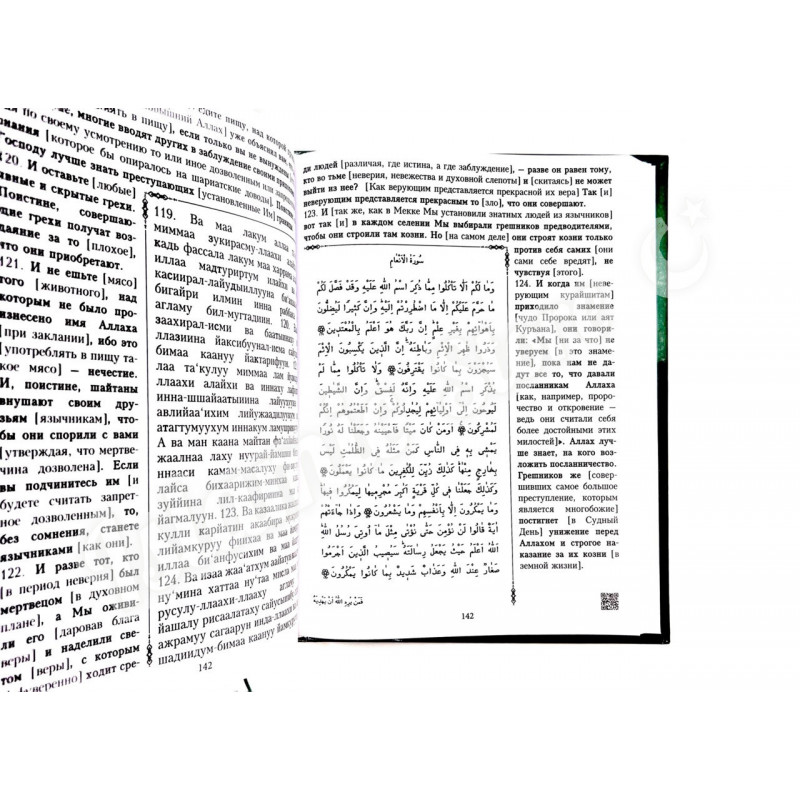 едите пищу, над которой
вышний Аллах] уже объяснил вам
лять в пищу], если только вы не вынуждены
многие вводят других в заблуждение своими
я по своему усмотрению то или иное дозволенным или
[которое бы опиралось на шариатские доводы]. Поистине,
Господу лучше знать преступающих [установленные Им] границы
120. И оставьте [любые]
явные и скрытые грехи.
Поистине, совершаю-
щие грехи получат воз-
даяние за то [плохое],
что они приобретают.
121. И не ешьте [мясо]
того [животного], над
которым не было про-
изнесено имя Аллаха
[при заклании], ибо это
[употреблять в пищу та-
кое мясо] — нечестие.
И, поистине, шайтаны
внушают своим дру-
зьям [язычникам], что-
бы они спорили с вами
[утверждая, что мертве-
чина дозволена]. Если
вы подчинитесь им [и
будете считать запрет-
ное дозволенным], то,
без сомнения, станете
язычниками [как они].
122. И разве тот, кто
[в период неверия] был
мертвецом [в духовном
плане], а Мы ожи-
ли его [даровав блага
веры] и наделили све-
том [веры], с которым
[уверенно] ходит сре-
119. Ва маа лакум аллаа
миммаа зукирасму-ллаахи
кадь фассала лакум маа харрама
иллаа мадтуриртум илайхи
касиирал-лайудыиллууна
бигайри илмин инна раббака
агламу бил-мугтадиин. 120.
заахирал-исми ва баатынах
ллазиина йаксибуунал-исма
бимаа каануу йактарифуун.
лаа та’кулуу миммаа лам
ллаахи алайхи ва иннаху
инна-шшайаатыина
авлийаа’ихим лийужаадилуукум
атагтумуухум иннакум
А ва ман каана майтан
жаалнаа лаху нуурай-йамшии
ннааси камам-масалуху
лайса бихаарижим-минхаа
зуййина лил-каафириина
йагмалуун. 123. Ва казаалика
кулли карйатин акаабира
лийамкуруу фиихаа ва
илла би’анфусихим ва маа
124. Ва изаа жаа’атхум
ну’мина хаттаа ну’таа мисла
русулу-ллаахи-ллааху агламу
йажалу рисаалатаху
ажрамуу сагаарун инда-ллаахи
шадиидум-бимаа каануу
142
ди людей [различая, где истина, а где заблуждение], — разве он равен тому,
кто во тьме [неверия, невежества и духовной слепоты] и [скитаясь] не может
выйти из нее? [Как верующим представляется прекрасной их вера] Так [и]
неверующим представляется прекрасным то [зло], что они совершают.
123. И [так же, как в Мекке Мы установили знатных людей из язычников]
вот так [и] в каждом селении Мы выбирали грешников предводителями,
чтобы они строили там козни. Но [на самом деле] они строят козни только
против себя самих [они
сами себе вредят], не
чувствуя [этого].
124. И когда им [не-
верующим курайшитам]
приходило знамение
[чудо Пророка или аят
Куръана], они говори-
ли: «Мы [ни за что] не
уверуем [в это знаме-
ние], пока нам не да-
дут все то, что давали
посланникам Аллаха
[как, например, проро-
чество и откровение —
ведь они считали себя
более достойными этих
милостей]». Аллах луч-
ше знает, на кого воз-
ложить посланничество.
Грешников же [совер-
шивших самое большое
преступление, которым
является многобожие]
постигнет [в Судный
День] унижение перед
Аллахом и строгое на-
казание за их козни [в
земной жизни].
سُورَةُ الْأَنْعَامِ
وَمَا لَكُمْ أَلَّا تَأْكُلُوا مِمَّا ذُكِرَ اسْمُ اللَّهِ عَلَيْهِ وَقَدْ فَصَّلَ لَكُمْ
مَا حَرَّمَ عَلَيْكُمْ إِلَّا مَا اضْطُرِرْتُمْ إِلَيْهِ وَإِنَّ كَثِيرًا لَيُضِلُّونَ
بِأَهْوَائِهِمْ بِغَيْرِ عِلْمٍ إِنَّ رَبَّكَ هُوَ أَعْلَمُ بِالْمُعْتَدِينَ
وَذَرُوا ظَاهِرَ الْإِثْمِ وَبَاطِنَهُ إِنَّ الَّذِينَ يَكْسِبُونَ الْإِثْمَ
سَيُجْزَوْنَ بِمَا كَانُوا يَقْتَرِفُونَ وَلَا تَأْكُلُوا مِمَّا لَمْ
يُذْكَرِ اسْمُ اللَّهِ عَلَيْهِ وَإِنَّهُ لَفِسْقٌ وَإِنَّ الشَّيَاطِينَ
لَيُوحُونَ إِلَى أَوْلِيَائِهِمْ لِيُجَادِلُوكُمْ وَإِنْ أَطَعْتُمُوهُمْ إِنَّكُمْ
لَمُشْرِكُونَ أَوَمَنْ كَانَ مَيْتًا فَأَحْيَيْنَاهُ وَجَعَلْنَا لَهُ نُورًا
يَمْشِي بِهِ فِي النَّاسِ كَمَنْ مَثَلُهُ فِي الظُّلُمَاتِ لَيْسَ
بِخَارِجٍ مِنْهَا كَذَلِكَ زُيِّنَ لِلْكَافِرِينَ مَا كَانُوا يَعْمَلُونَ
وَكَذَلِكَ جَعَلْنَا فِي كُلِّ قَرْيَةٍ أَكَابِرَ مُجْرِمِيهَا لِيَمْكُرُوا فِيهَا
وَمَا يَمْكُرُونَ إِلَّا بِأَنْفُسِهِمْ وَمَا يَشْعُرُونَ وَإِذَا جَاءَتْهُمْ
آيَةٌ قَالُوا لَنْ نُؤْمِنَ حَتَّى نُؤْتَى مِثْلَ مَا أُوتِيَ رُسُلُ اللَّهِ
اللَّهُ أَعْلَمُ حَيْثُ يَجْعَلُ رِسَالَتَهُ سَيُصِيبُ الَّذِينَ أَجْرَمُوا
صَغَارٌ عِنْدَ اللَّهِ وَعَذَابٌ شَدِيدٌ بِمَا كَانُوا يَمْكُرُونَ
فَمَنْ يُرِدِ اللَّهُ أَنْ يَهْدِيَهُ
142